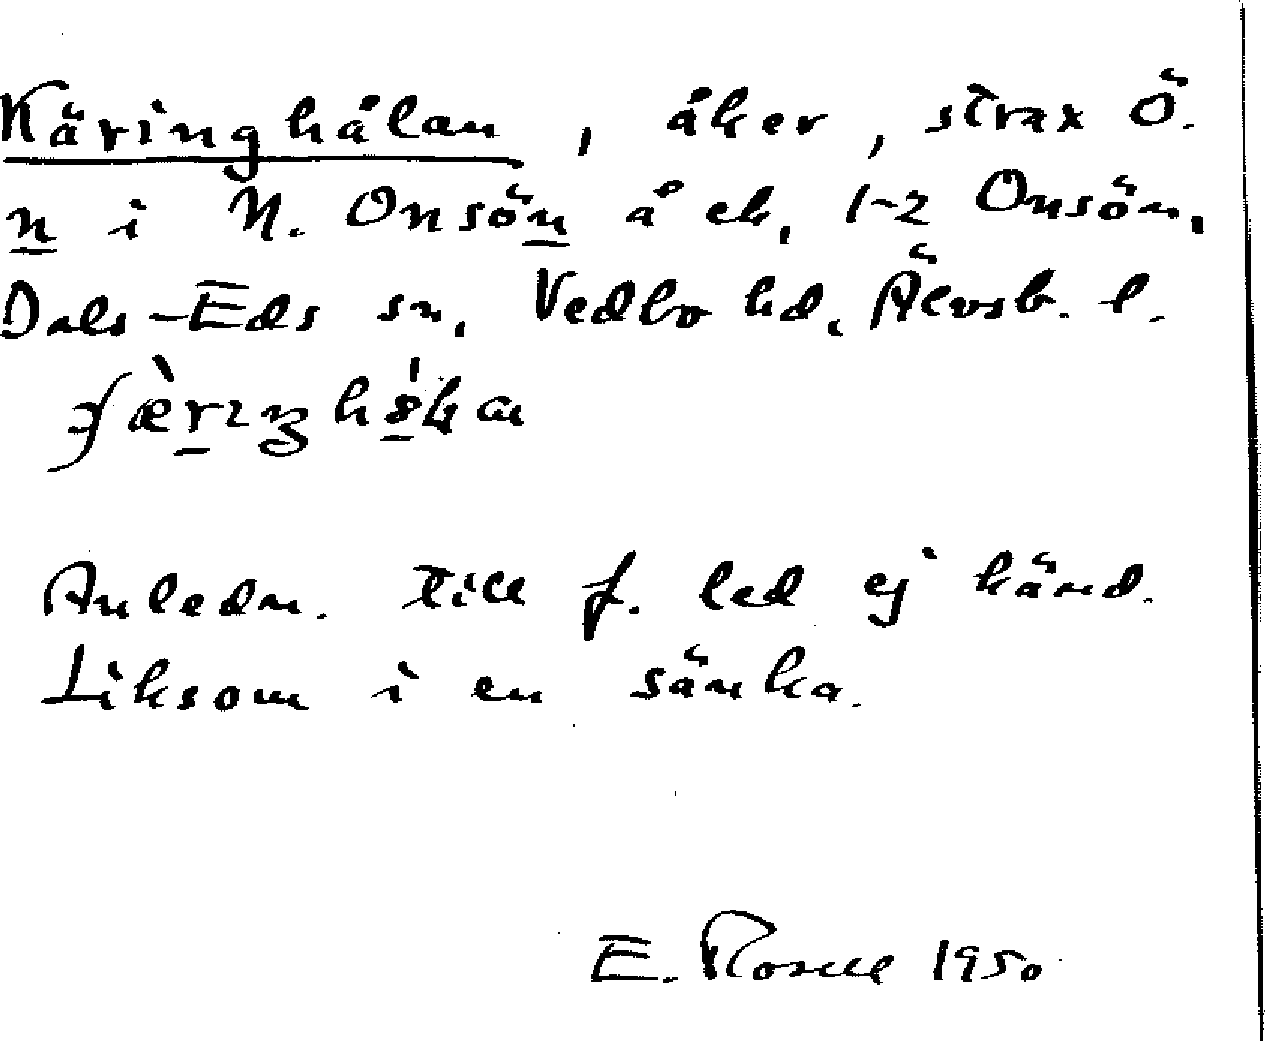 Käringhålan, åker, strax Ö.
n i N. Onsön å ek. 1-2 Onsön,
Dals-Eds sn, Vedbo hd, Älvsb. l.
Anledn. till f. led ej känd.
Liksom i en sänka.
E. Rosell 1950